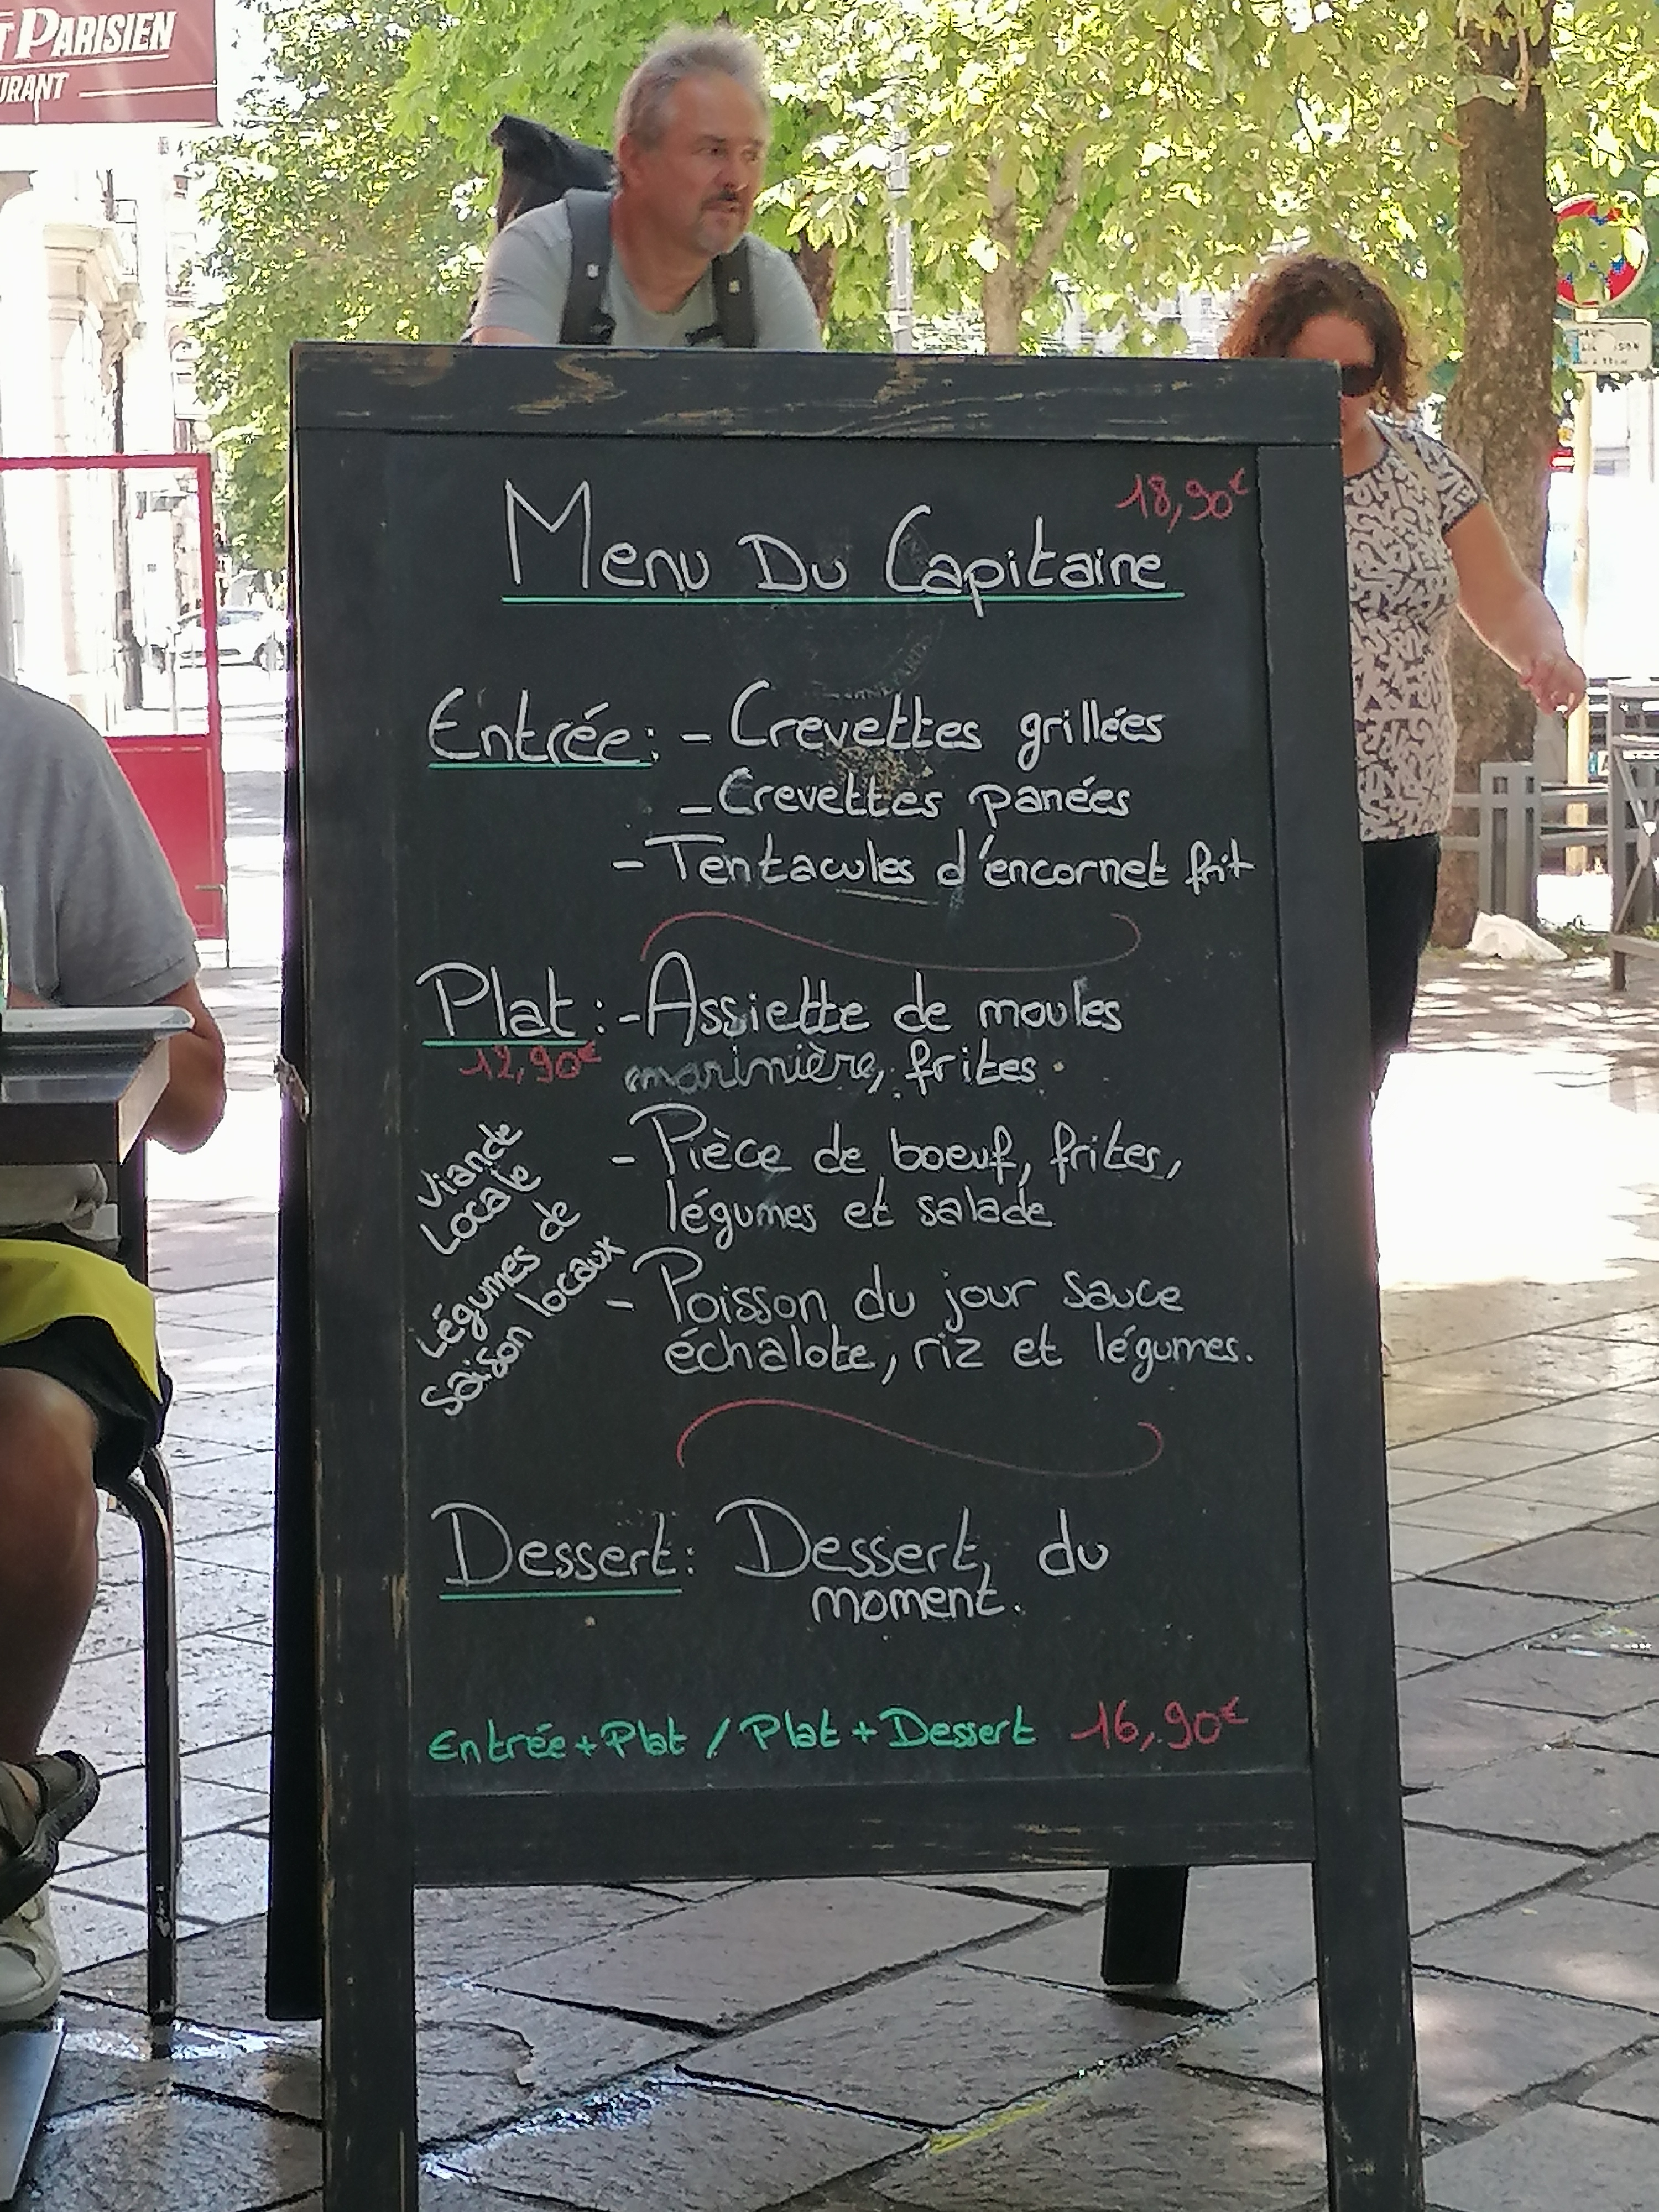 T PARISIEN
URANT
18,90€
Menu Du Capitaine
Entrée: - Crevettes grillées
- Crevettes panées
- Tentacules d'encornet frit
Plat: - Assiette de moules
12,90€ marinière, frites.
- Pièce de boeuf, frites,
légumes et salade
- Poisson du jour sauce
échalote, riz et légumes.
Viande
Locale
Légumes de
saison locaux
Dessert: Dessert du
moment.
Entrée+Plat / Plat + Dessert 16,90€